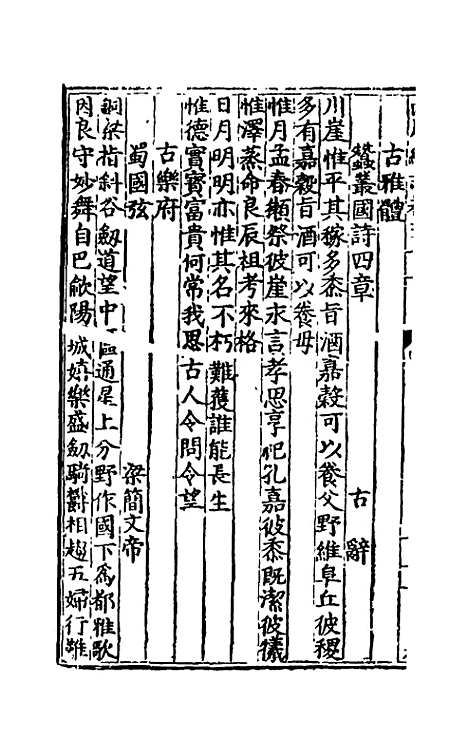 古雅體
蠶叢國詩四章
古辭
川崖惟平其稼多黍旨酒嘉穀可以養父野維阜丘彼稷
多有嘉穀旨酒可以養母
惟月孟春獺祭彼崖永言孝思享祀孔嘉彼黍既潔彼犧
惟澤蒸命良辰祖考來格
日月明明亦惟其名不朽難獲誰能長生
惟德實寳富貴何常我思古人令問令望
古樂府
蜀國弦
梁簡文帝
銅梁指斜谷劔道望中區通星上分野作國下為都雅歌
因良守妙舞自巴歈陽城嬉樂盛劔騎欝相趨五婦行難